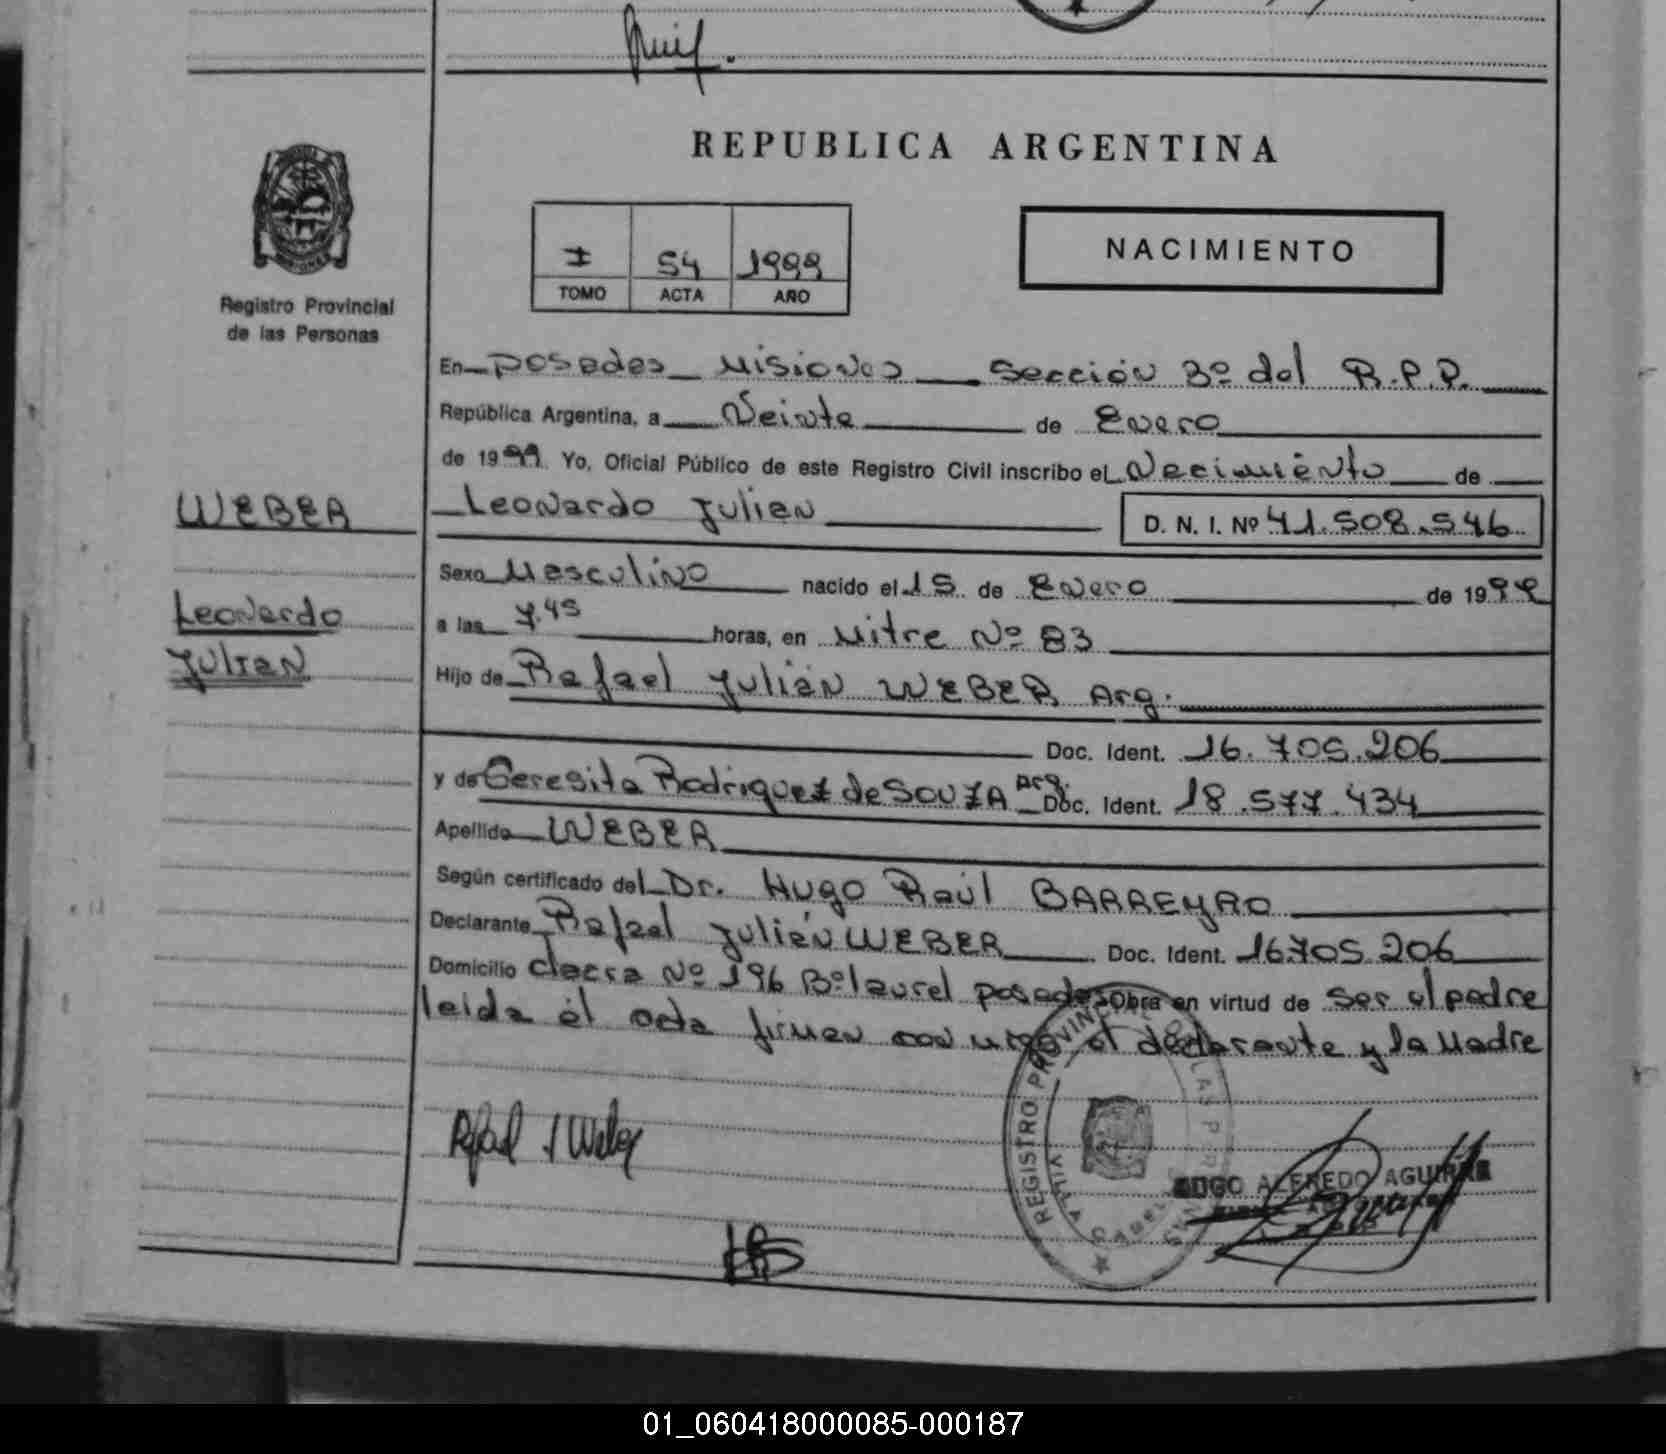 REPUBLICA ARGENTINA
I 54 1999
TOMO ACTA AÑO
NACIMIENTO
Registro Provincial
de las Personas
En Posadas Misiones Sección 3º del R.P.P.
República Argentina, a Veinte de Enero
de 1999 Yo, Oficial Público de este Registro Civil inscribo el Nacimiento de
WEBER
Leonardo Julian
D. N. I. Nº 41.508.546
Leonardo
Julian
Sexo Masculino nacido el 15 de Enero de 1999
a las 7.45 horas, en Mitre Nº 83
Hijo de Rafael Julián WEBER Arg.
Doc. Ident. 16.705.206
y de Teresita Rodriguez de SOUZA Arg. Doc. Ident. 18.577.434
Apellido WEBER
Según certificado del Dr. Hugo Raúl BARREYRO
Declarante Rafael Julián WEBER Doc. Ident. 16.705.206
Domicilio chacra Nº 196 Bº laurel posadas Obra en virtud de ser el padre
leida el acta firman con migo el declarante y la Madre
Rafael J Weber
REGISTRO PROVINCIAL DE LAS PERSONAS
HUGO ALFREDO AGUIRRE
01_060418000085-000187